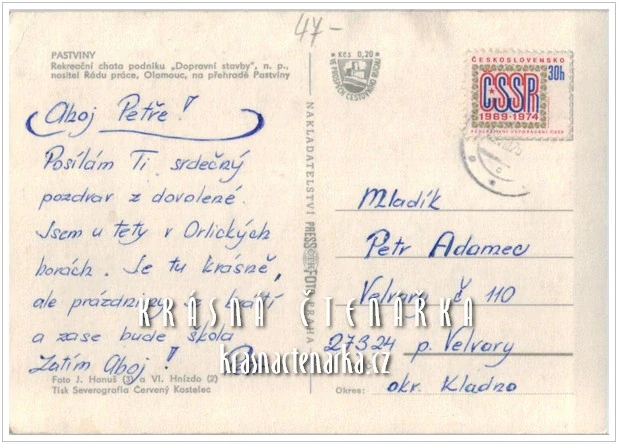 47-
PASTVINY
Rekreační chata podniku „Dopravní stavby", n. p.,
nositel Řádu práce, Olomouc, na přehradě Pastviny
Kčs 0,20
Ahoj Petře!
Posílám Ti srdečný
pozdrav z dovolené.
Jsem u tety v Orlických
horách. Je tu krásně,
ale prázdniny se krátí
a zase bude škola
Zatím Ahoj!
Foto J. Hanuš (3) a Vl. Hnízdo (2)
Tisk Severografia Červený Kostelec
NAKLADATELSTVÍ PRESSFOTO PRAHA
ČESKOSLOVENSKO
30h
ČSSR
1969-1974
Mladík
Petr Adamec
Velvary č 110
27324 p. Velvary
Okres: okr. Kladno
KRÁSNÁ ČTENÁŘKA
krasnactenarka.cz